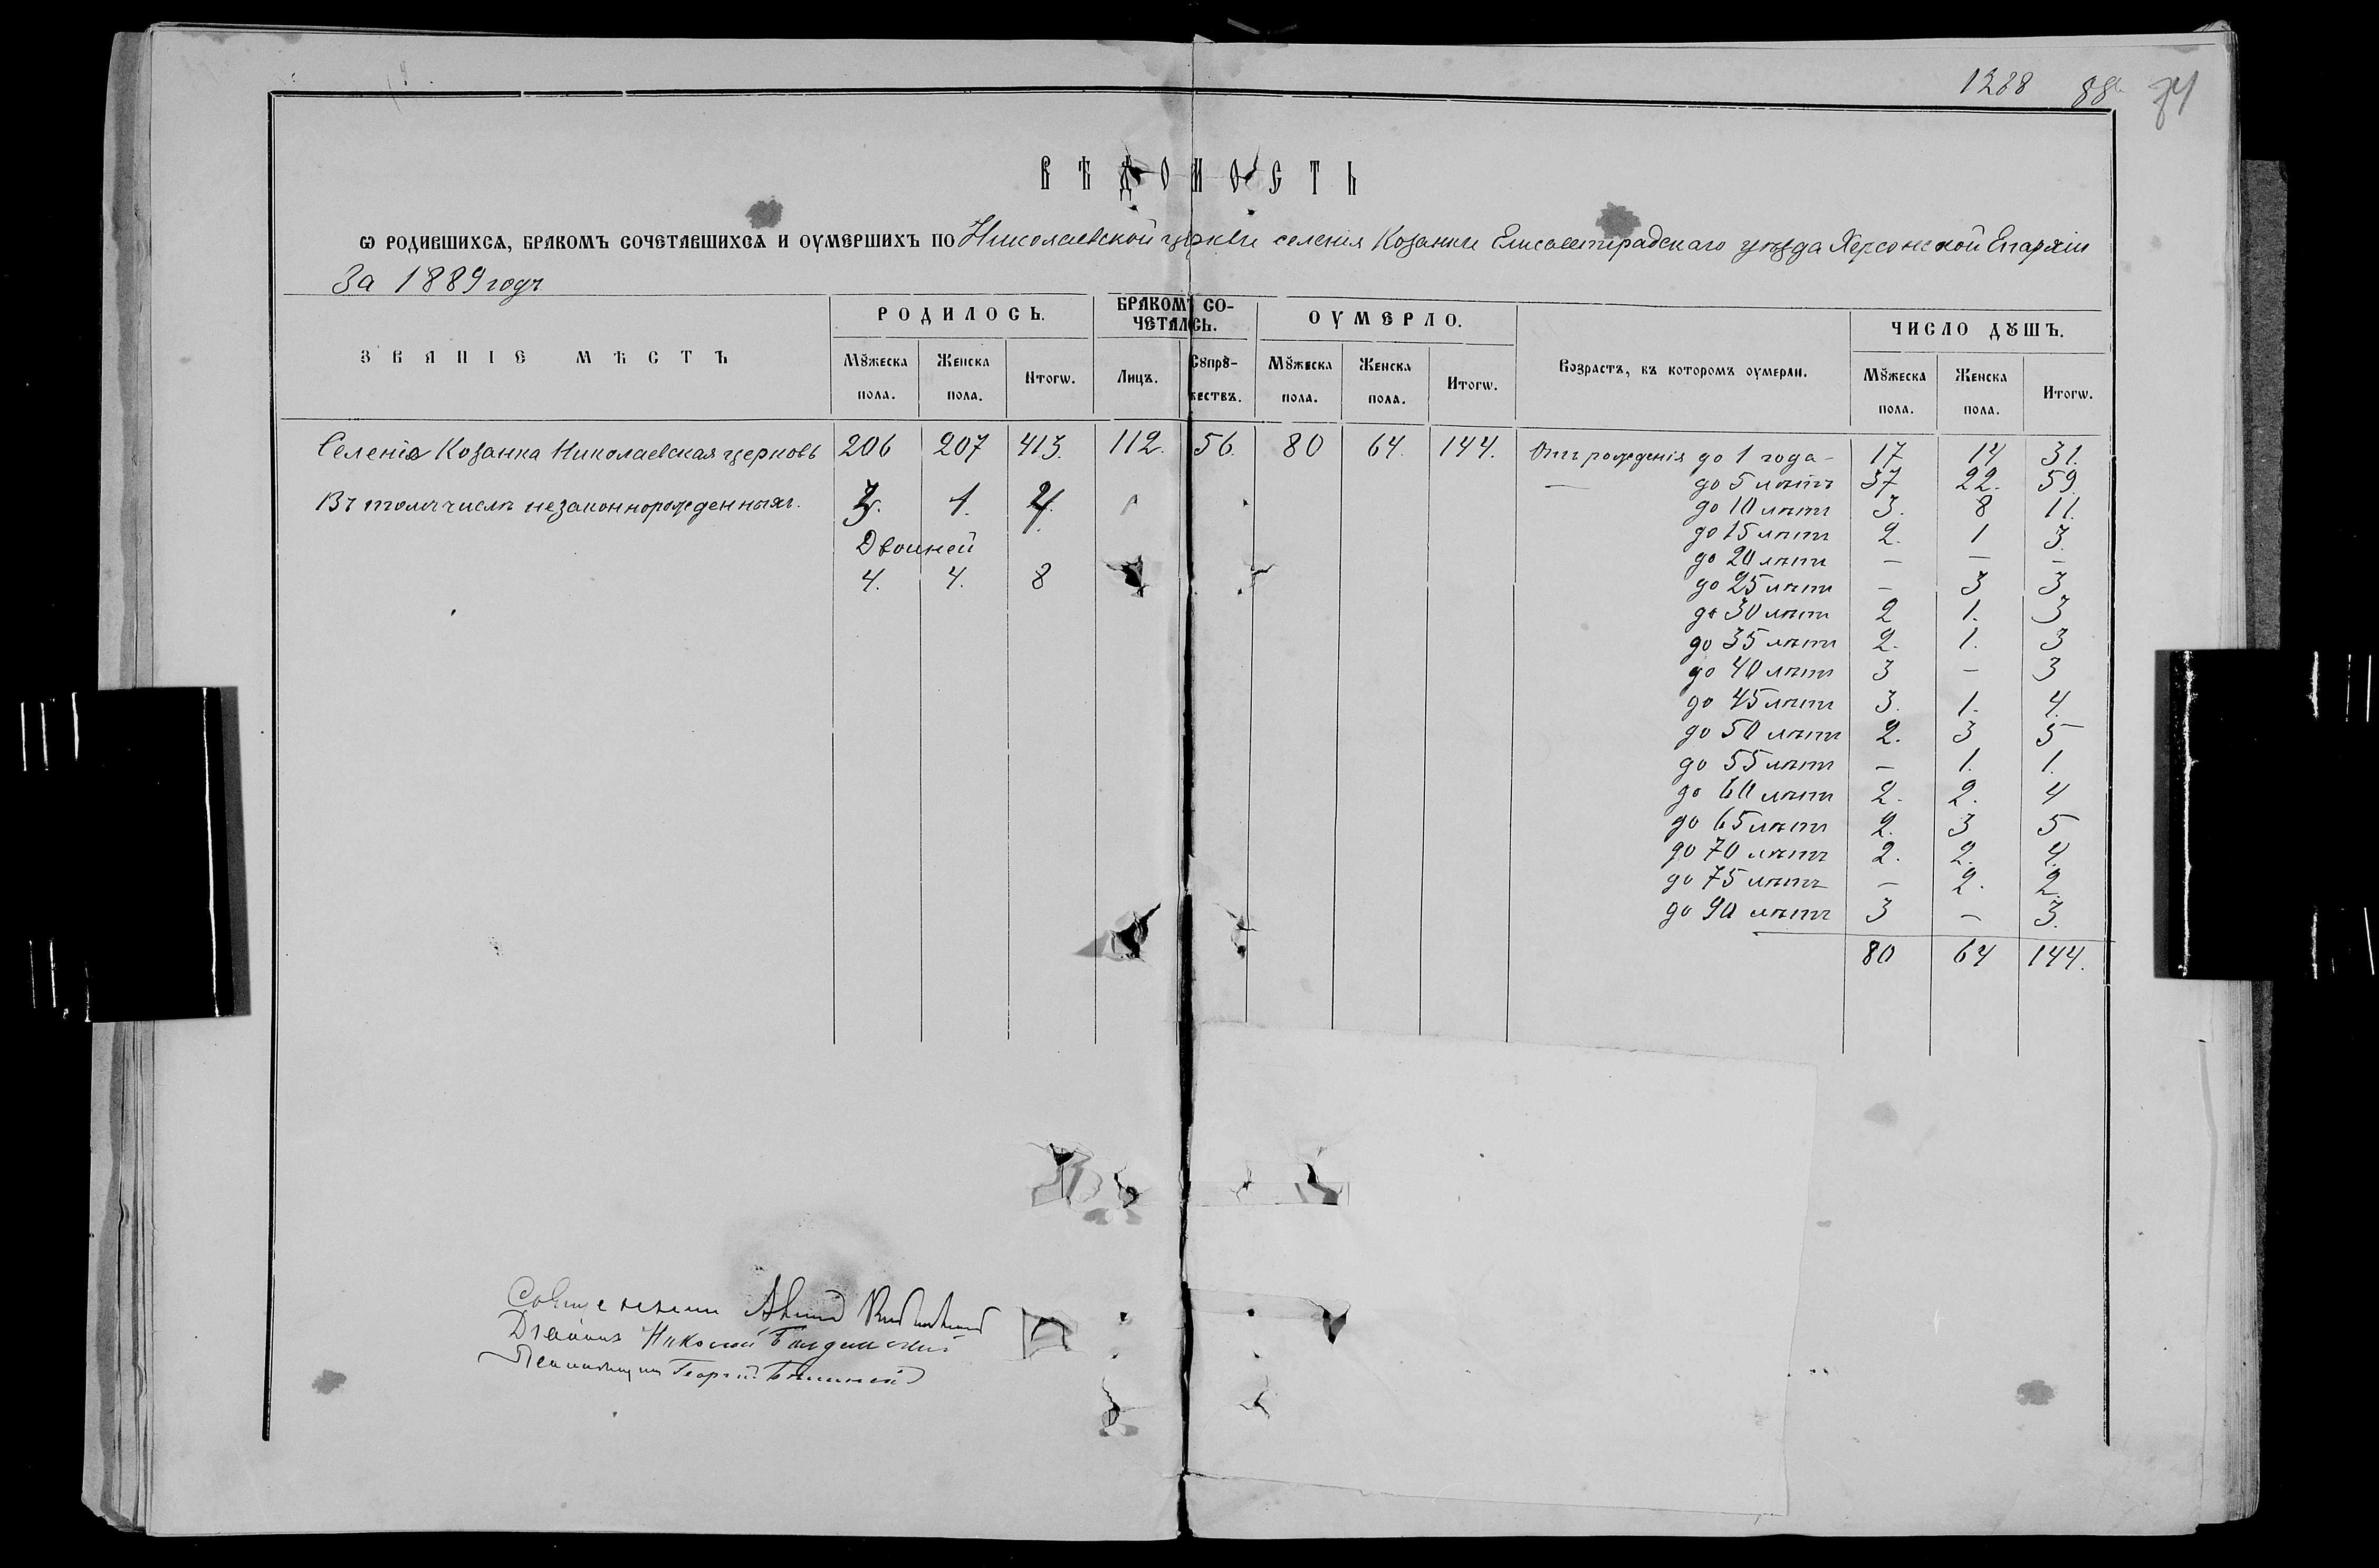 1288 88 74
ВѢДОМОСТЬ
Ѡ РОДИВШИХСѦ, БРАКОМЪ СОЧЕТАВШИХСѦ И ОУМЕРШИХЪ ПО Николаевской церкви селенія Козанки Елисаветградскаго уѣзда Херсонской Епархіи
За 1889 годъ
ЗВАНІЕ МѢСТЪ
РОДИЛОСЬ.
БРАКОМЪ СО-
ЧЕТАЛИСЬ.
ОУМЕРЛО.
Возрастъ, въ которомъ оумерли.
ЧИСЛО ДꙊШЪ.
Мꙋжеска пола. Женска пола. Итогѡ. Лицъ. Сꙋпрꙋ-
жествъ. Мꙋжеска пола. Женска пола. Итогѡ. Мꙋжеска пола. Женска пола. Итогѡ.
Селенія Козанка Николаевская церковь 206 207 413. 112. 56. 80 64. 144. Отъ рожденія до 1 года - 17 14 31.
— до 5 лѣтъ 37 22. 59
Въ томъ числѣ незаконнорожденныхъ. 3. 1. 4. до 10 лѣтъ 3. 8 11.
до 15 лѣтъ 2. 1 3.
Двойней до 20 лѣтъ — — —
4. 4. 8 до 25 лѣтъ — 3 3
до 30 лѣтъ 2 1. 3
до 35 лѣтъ 2. 1. 3
до 40 лѣтъ 3 — 3
до 45 лѣтъ 3. 1. 4.
до 50 лѣтъ 2. 3 5
до 55 лѣтъ — 1. 1.
до 60 лѣтъ 2. 2. 4
до 65 лѣтъ 2. 3 5
до 70 лѣтъ 2. 2. 4.
до 75 лѣтъ — 2. 2.
до 90 лѣтъ 3 — 3.
80 64 144.
Священникъ
Діаконъ Николай
Псаломщикъ Георгій